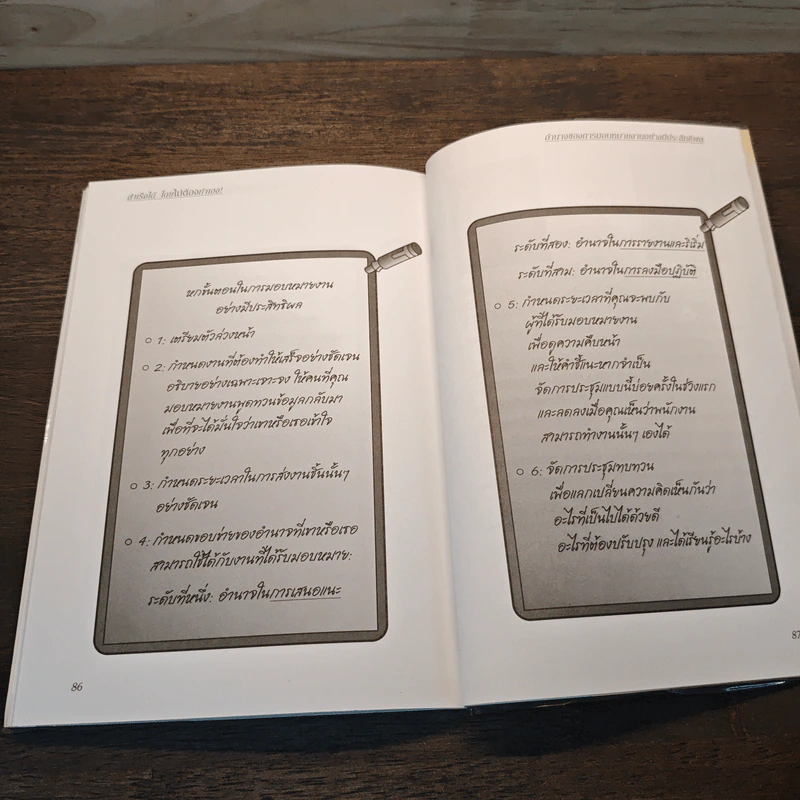 สำเร็จได้ โดยไม่ต้องทำเอง!
หกขั้นตอนในการมอบหมายงาน
อย่างมีประสิทธิผล
1: เตรียมตัวล่วงหน้า
2: กำหนดงานที่ต้องทำให้เสร็จอย่างชัดเจน
อธิบายอย่างเฉพาะเจาะจง ให้คนที่คุณ
มอบหมายงานพูดทวนข้อมูลกลับมา
เพื่อที่จะได้มั่นใจว่าเขาหรือเธอเข้าใจ
ทุกอย่าง
3: กำหนดระยะเวลาในการส่งงานชิ้นนั้นๆ
อย่างชัดเจน
4: กำหนดขอบข่ายของอำนาจที่เขาหรือเธอ
สามารถใช้ได้กับงานที่ได้รับมอบหมาย:
ระดับที่หนึ่ง: อำนาจในการเสนอแนะ
86
อำนาจของการมอบหมายงานอย่างมีประสิทธิผล
ระดับที่สอง: อำนาจในการรายงานและริเริ่ม
ระดับที่สาม: อำนาจในการลงมือปฏิบัติ
5: กำหนดระยะเวลาที่คุณจะพบกับ
ผู้ที่ได้รับมอบหมายงาน
เพื่อดูความคืบหน้า
และให้คำชี้แนะหากจำเป็น
จัดการประชุมแบบนี้บ่อยครั้งในช่วงแรก
และลดลงเมื่อคุณเห็นว่าพนักงาน
สามารถทำงานนั้นๆ เองได้
6: จัดการประชุมทบทวน
เพื่อแลกเปลี่ยนความคิดเห็นกันว่า
อะไรที่เป็นไปได้ด้วยดี
อะไรที่ต้องปรับปรุง และได้เรียนรู้อะไรบ้าง
87